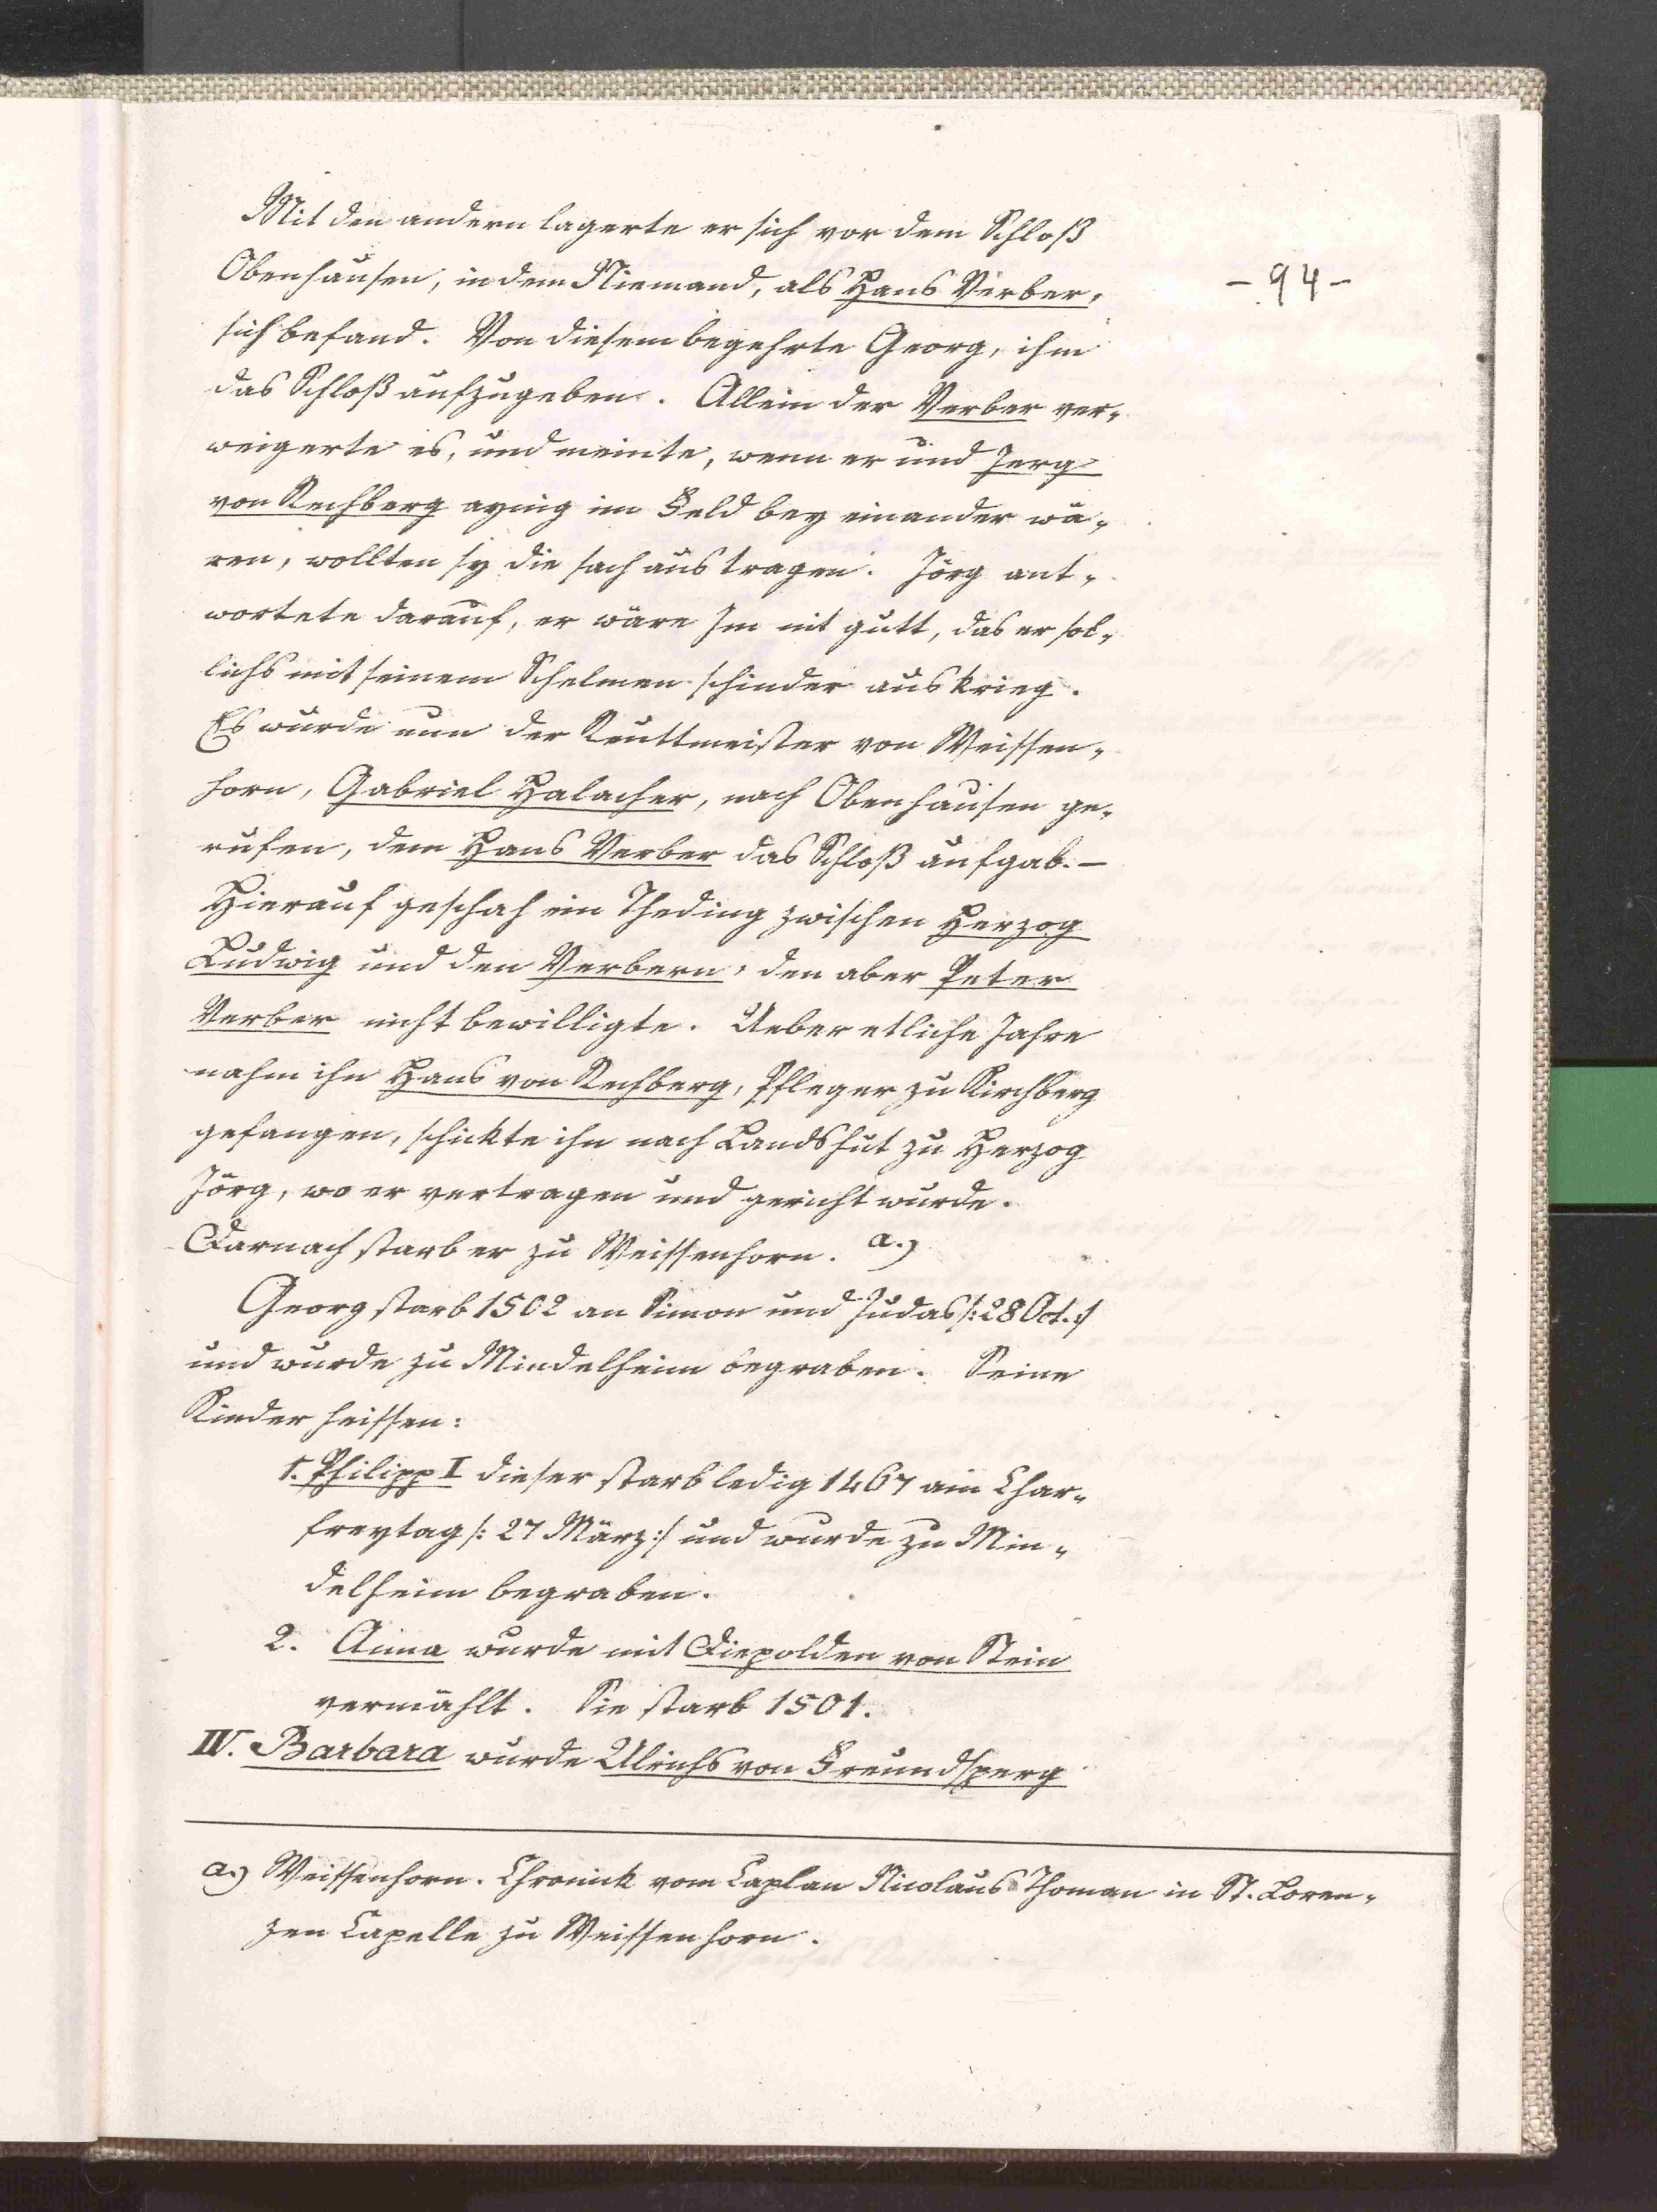 Mit den andern lagerte er sich vor dem Schloß
Obenhausen, in dem Niemand, als Hans Verber,
- 94 -
sich befand. Von diesem begehrte Georg, ihm
das Schloß aufzugeben. Allein der Verber ver„
weigerte es, und meinte, wenn er und Jerg
von Rechberg aynig im Feld bey einander wä„
ren, wollten sy die sach austragen. Jörg ant„
wortete darauf, er wäre Im nit gutt, das er sol„
lichs mit seinem Schelmen schinder auskrieg.
Es wurde nun der Reuttmeister von Weissen„
horn, Gabriel Halacher, nach Obenhausen ge„
rufen, dem Hans Verber das Schloß aufgab. –
Hierauf geschah ein Theding zwischen Herzog
Ludwig und den Verbern, den aber Peter
Verber nicht bewilligte. Ueber etliche Jahre
nahm ihn Hans von Rechberg, Pfleger zu Kirchberg
gefangen, schickte ihn nach Landshut zu Herzog
Jörg, wo er vertragen und gericht wurde.
Darnach starb er zu Weissenhorn. a.)
Georg starb 1502 an Simon und Judas /: 28 Oct. :/
und wurde zu Mindelheim begraben. Seine
Kinder heissen:
1. Philipp I dieser starb ledig 1467 am Char„
freytag /: 27 März :/ und wurde zu Min„
delheim begraben.
2. Anna wurde mit Diepolden von Stein
vermählt. Sie starb 1501.
IV. Barbara wurde Ulrichs von Freundsperg
a.) Weissenhorn. Chronick vom Caplan Nicolaus Thoman in St. Loren„
zen Capelle zu Weissenhorn.